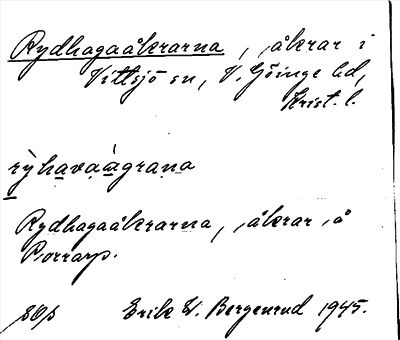 Rydhagaåkrarna, åkrar i
Vittsjö sn, V. Göinge hd,
Krist. l.
rỳhavaàgrana
Rydhagaåkrarna, åkrar å
Porrarp.
Erik W. Bergenrud 1945.